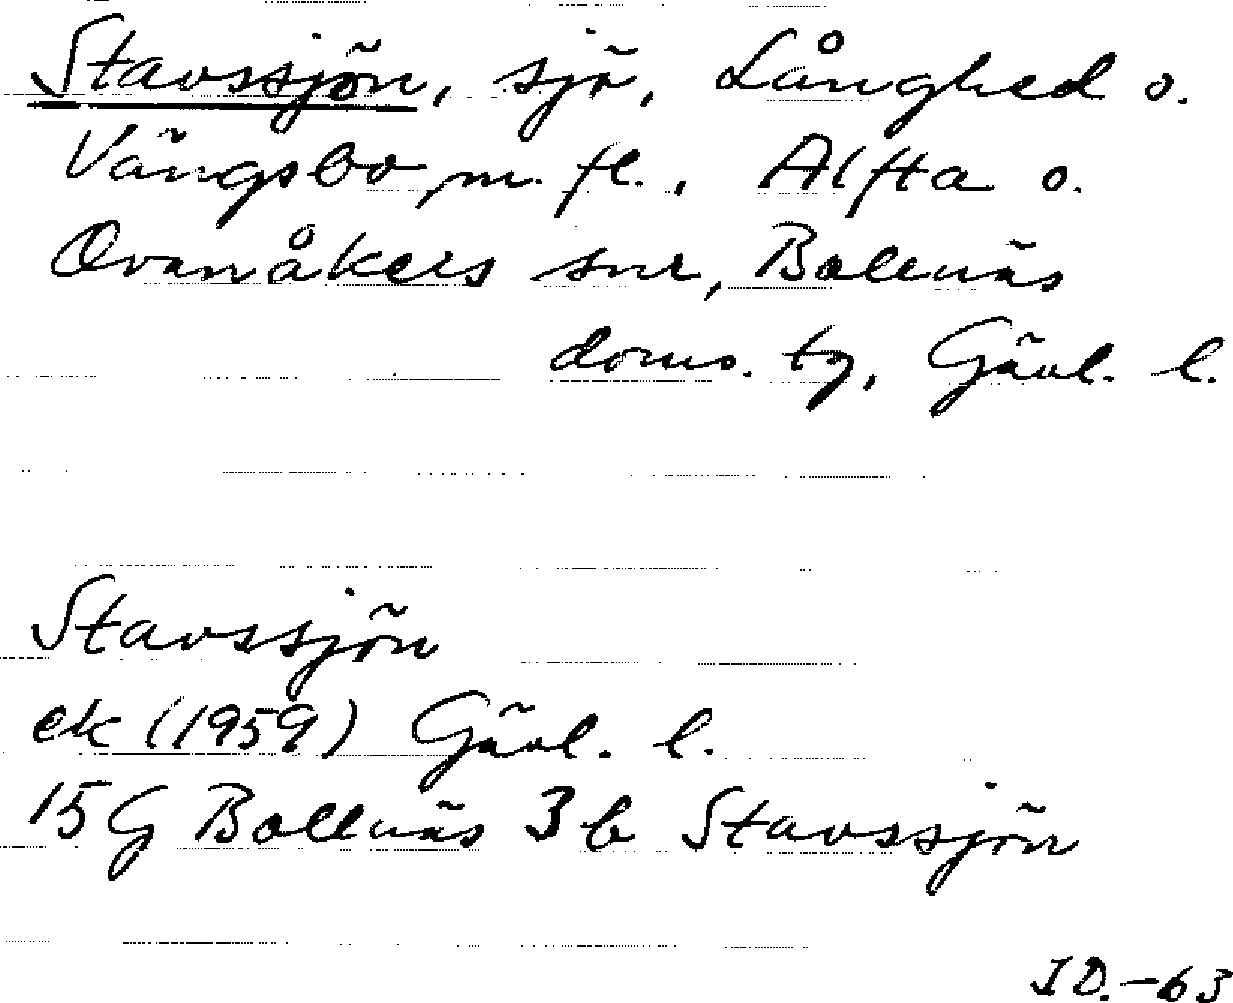 Stavssjön, sjö, Långhed o.
Vängsbo m. fl., Alfta o.
Ovanåkers snr, Bollnäs
doms. tg, Gävl. l.
Stavssjön
ek (1959) Gävl. l.
15 G Bollnäs 3 b Stavssjön
I D. - 63